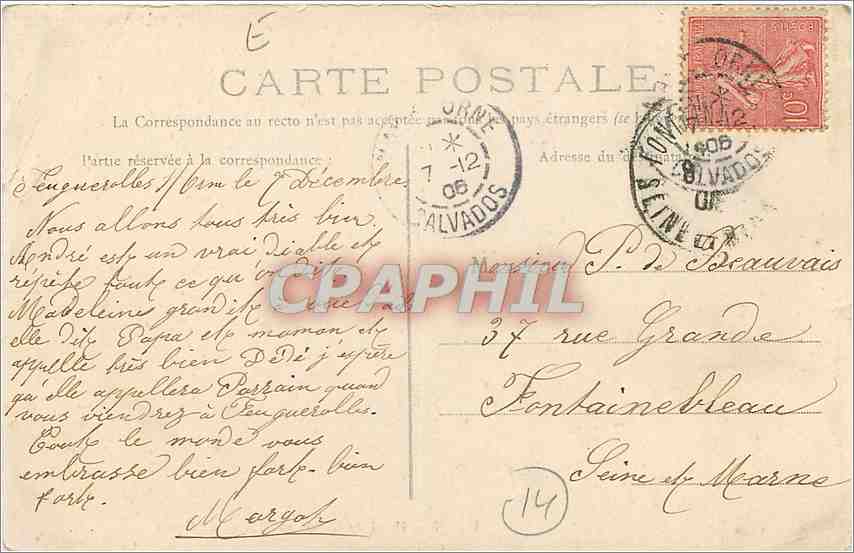 E
CARTE POSTALE
La Correspondance au recto n'est pas acceptée par tous les pays étrangers (se
Partie réservée à la correspondance :
Adresse du
ORNE
7 -12
06
CALVADOS
POSTES
10c
CALVADOS
SEINE
Feuguerolles s/Orne le 7 Décembre
Nous allons tous très bien
André est un vrai diable et
répète tout ce qu'on dit
Madeleine grandit
elle dit Papa et maman et
appelle très bien Dédé j'espère
qu'elle appellera Parrain quand
vous viendrez à Feuguerolles.
Tout le monde vous
embrasse bien fort - bien
fort.
Margot
Monsieur P. de Beauvais
37 rue Grande
Fontainebleau
Seine et Marne
14
CPAPHIL